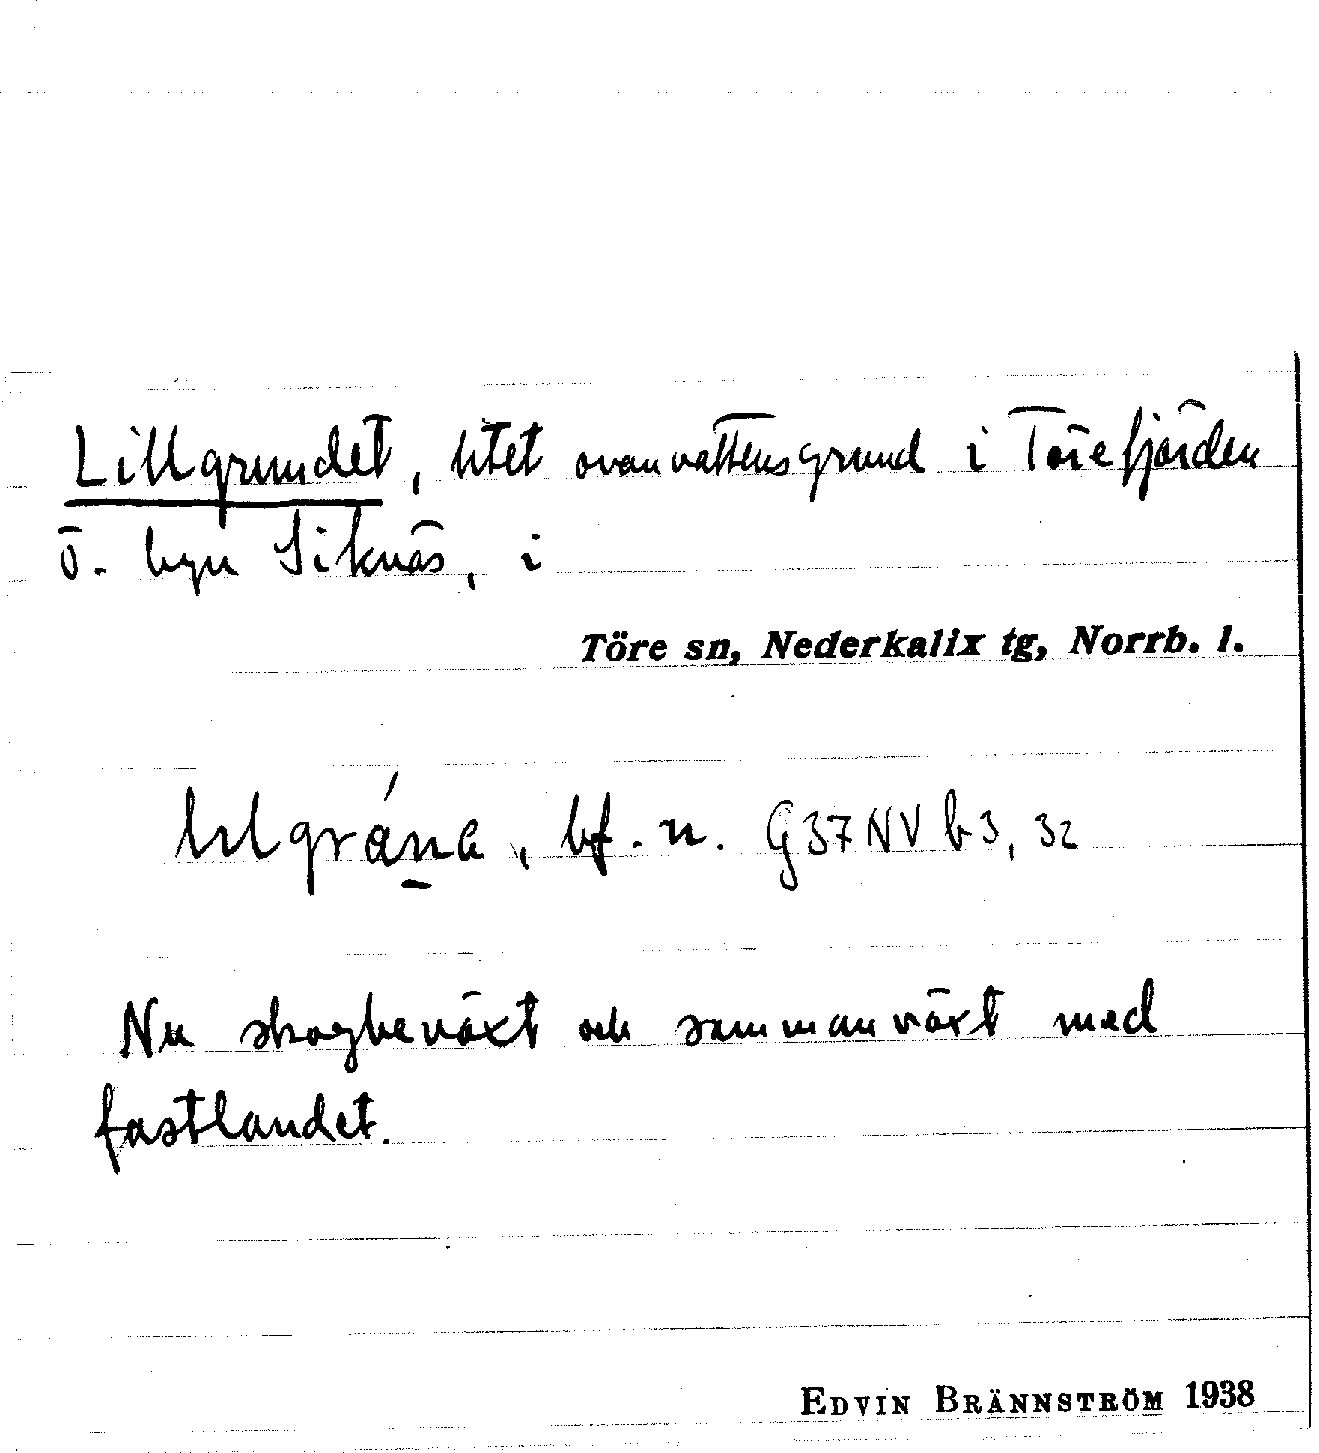 Lillgrundet, litet ovanvattensgrund i Törefjärden
ö. byn Siknäs, i
Töre sn, Nederkalix tg, Norrb. l.
lilgrána, bf. n. G37NV b3, 32
Nu skogbeväxt och sammanväxt med
fastlandet.
EDVIN BRÄNNSTRÖM 1938